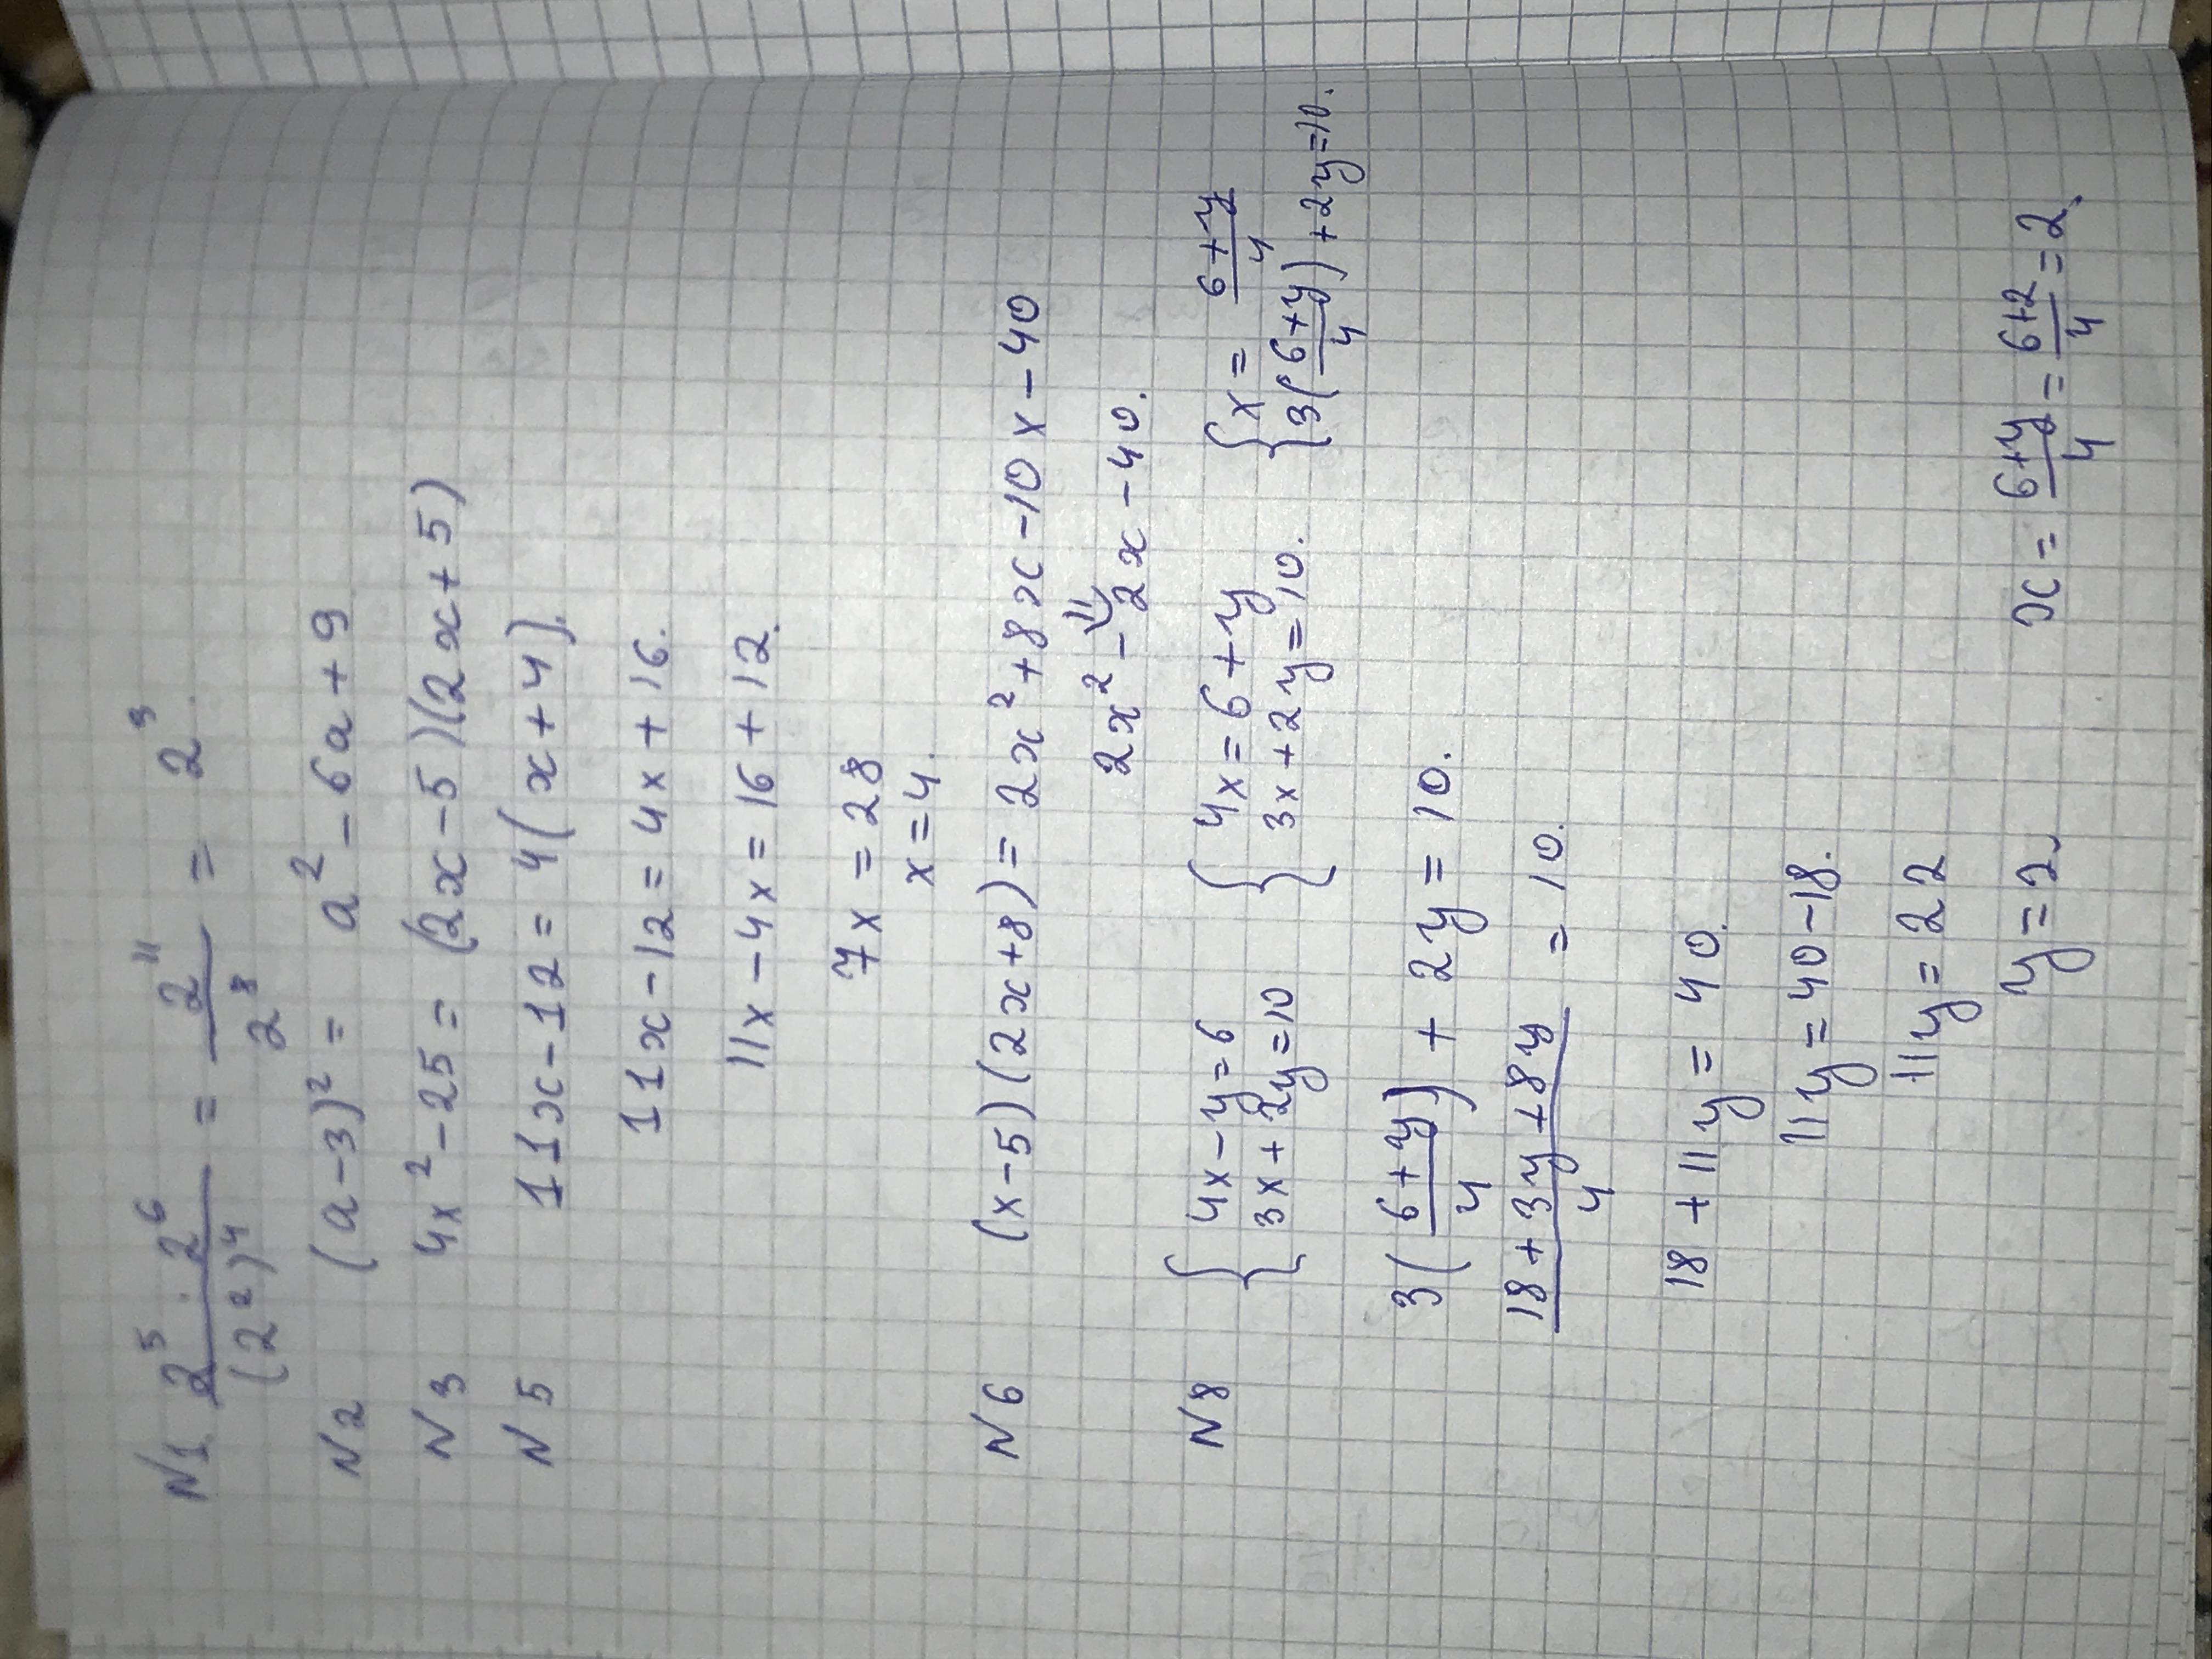 N1. 2⁵ · 2⁶ / (2²)⁴ = 2¹¹ / 2⁸ = 2³
N2 (a-3)² = a² - 6a + 9
N3 4x² - 25 = (2x-5)(2x+5)
N5 11x - 12 = 4(x+4).
11x - 12 = 4x + 16.
11x - 4x = 16 + 12.
7x = 28
x = 4.
N6 (x-5)(2x+8) = 2x² + 8x - 10x - 40
=
2x² - 2x - 40.
N8 { 4x - y = 6 { 4x = 6 + y { x = (6+y)/4
3x + 2y = 10 3x + 2y = 10. 3((6+y)/4) + 2y = 10.
3((6+y)/4) + 2y = 10.
(18 + 3y + 8y)/4 = 10.
18 + 11y = 40.
11y = 40 - 18.
11y = 22
y = 2, x = (6+y)/4 = (6+2)/4 = 2,